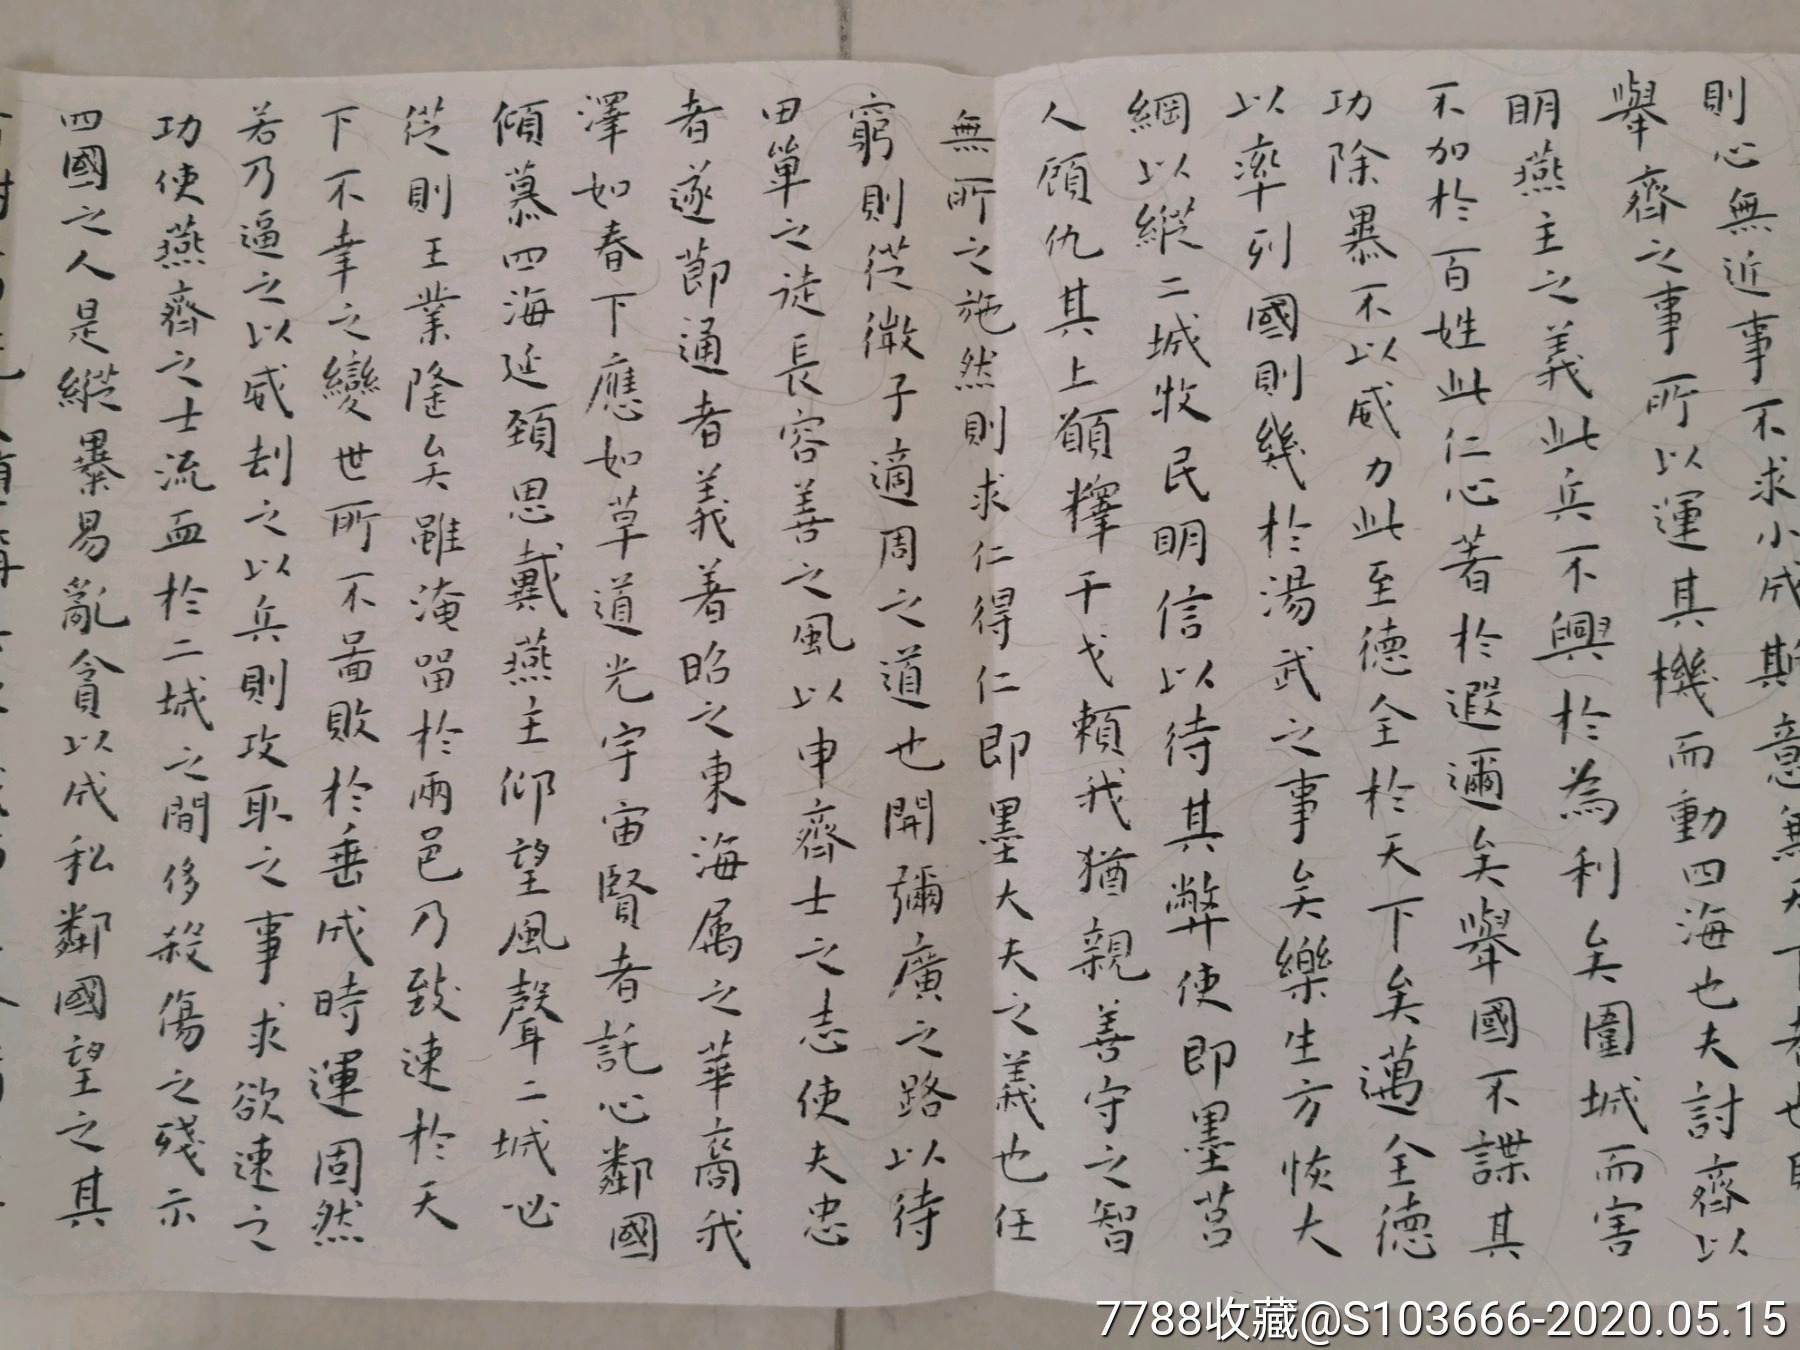 則心無近事不求小成斯意無天下者也則
舉齊之事所以運其機而動四海也夫討齊以
明燕主之義此兵不興於為利矣圍城而害
不加於百姓此仁心著於遐邇矣舉國不謀其
功除暴不以威力此至德全於天下矣邁全德
以率列國則幾於湯武之事矣樂生方恢大
綱以縱二城牧民明信以待其弊使即墨莒
人顧仇其上願釋干戈賴我猶親善守之智
無所之施然則求仁得仁即墨大夫之義也任
窮則從微子適周之道也開彌廣之路以待
田單之徒長容善之風以申齊士之志使夫忠
者遂節通者義著昭之東海属之華裔我
澤如春下應如草道光宇宙賢者託心鄰國
傾慕四海延頸思戴燕主仰望風聲二城必
從則王業隆矣雖淹留於兩邑乃致速於天
下不幸之變世所不啚敗於垂成時運固然
若乃逼之以威劫之以兵則攻取之事求欲速之
功使燕齊之士流血於二城之間侈殺傷之殘示
四國之人是縱暴易亂貪以成私鄰國望之其
7788收藏@S103666-2020.05.15